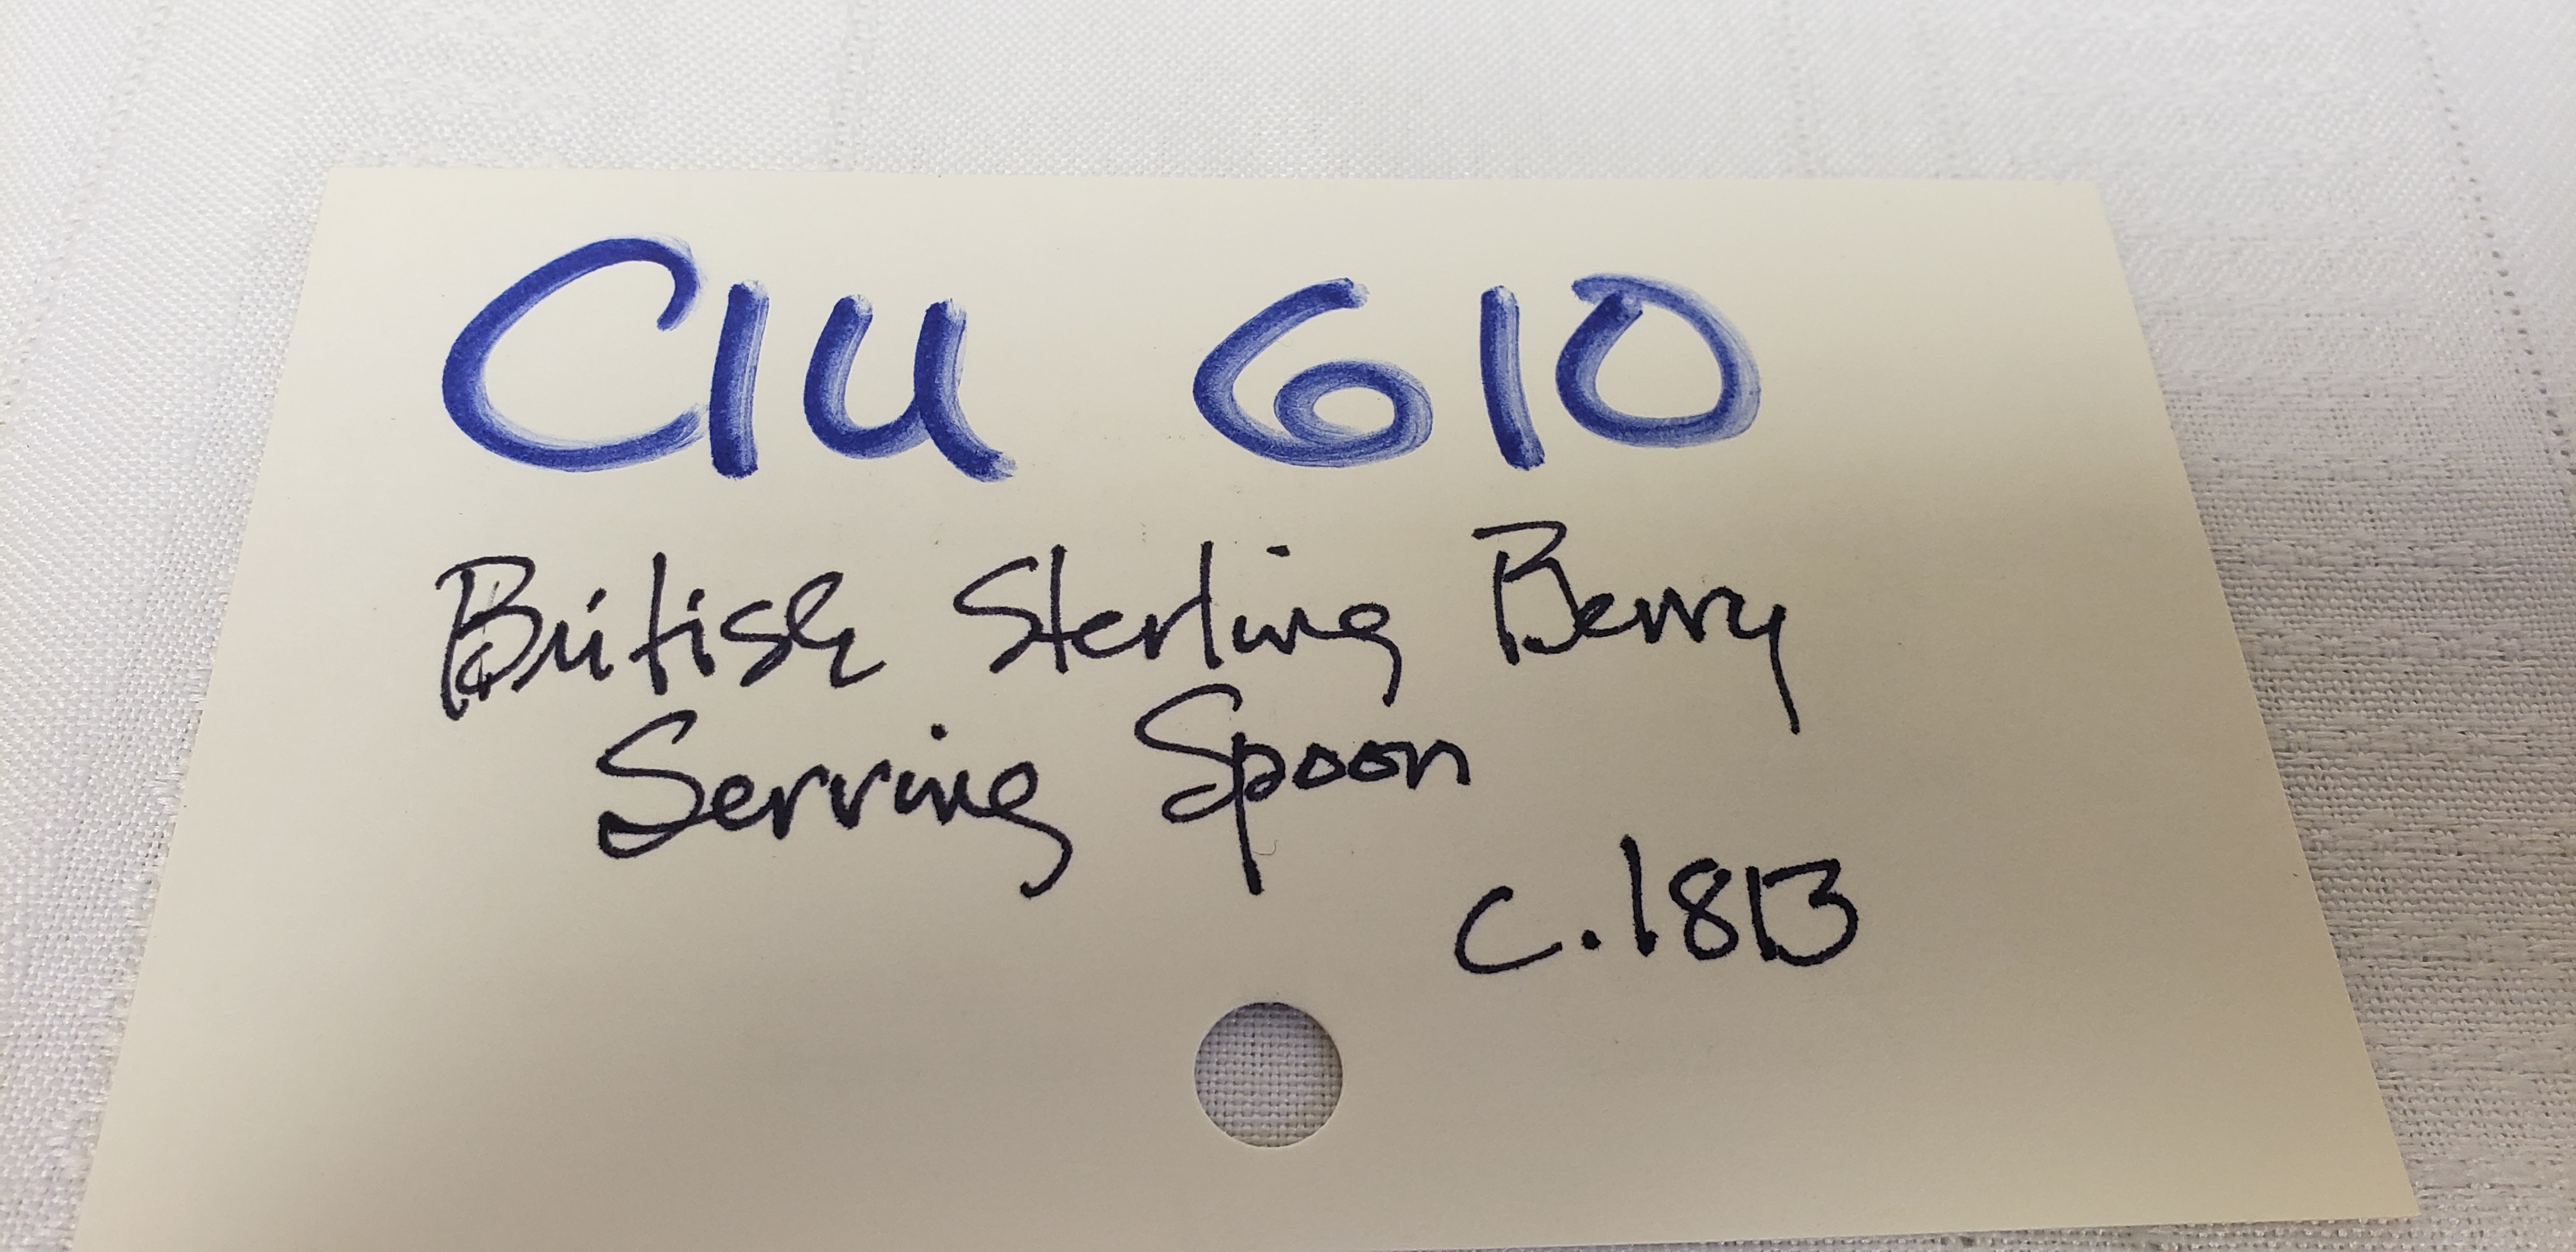 CIU 610
British Sterling Berry
Serving Spoon
c.1813